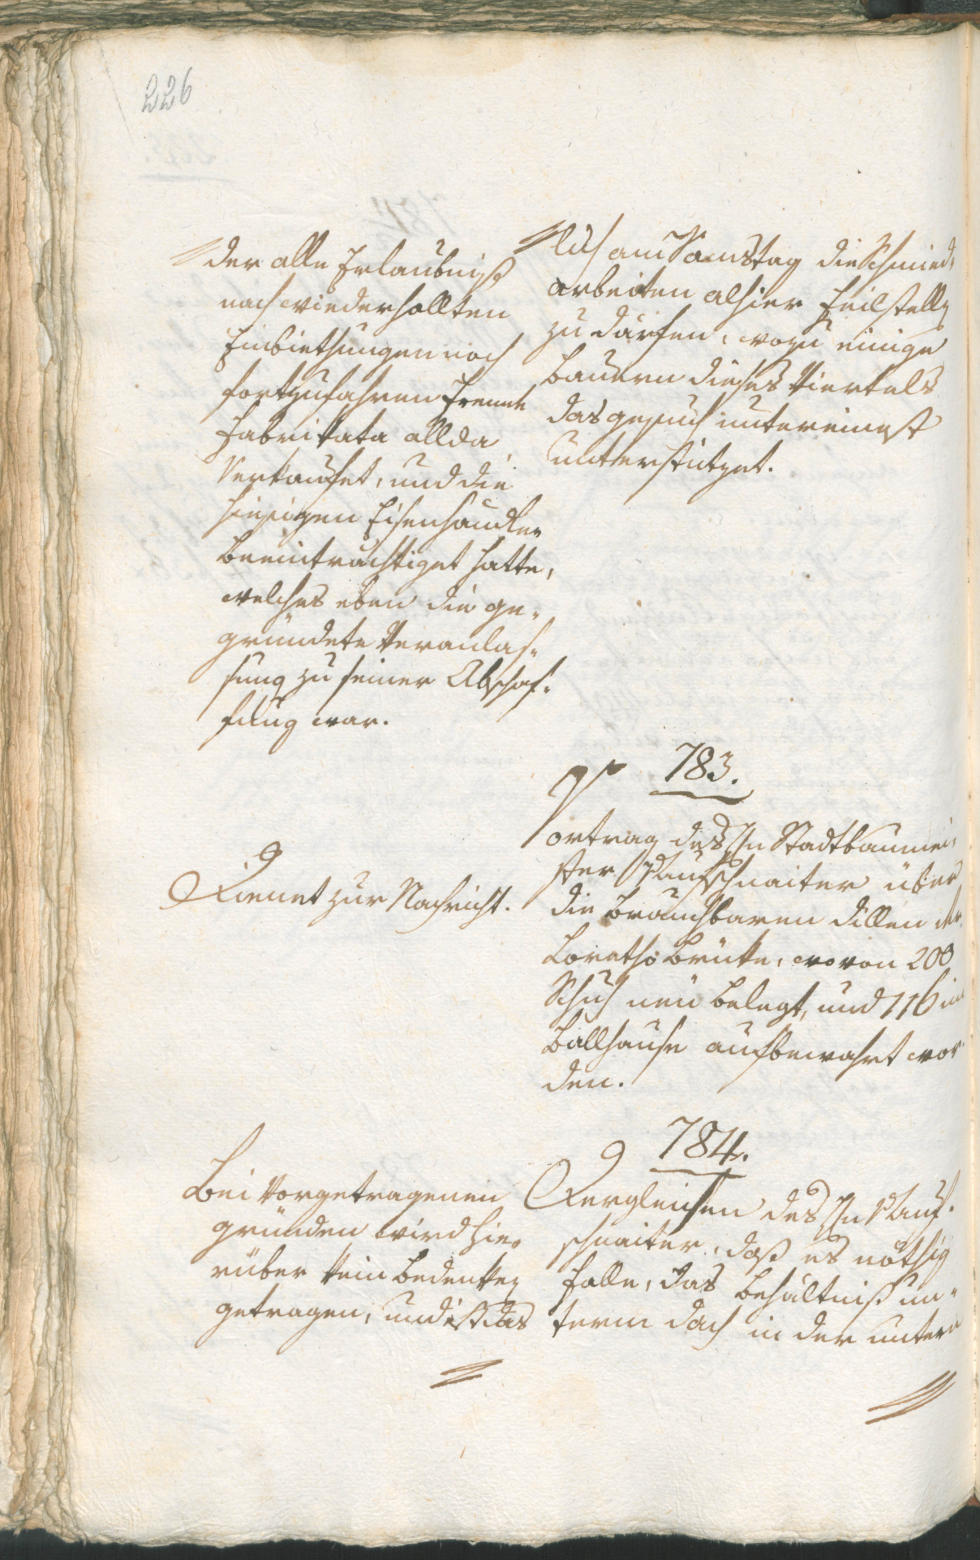 226
der alle Erlaubniß
nach wiederhollten
Einbiethungen noch
fortzufahren fremde
Fabrikata allda
Verkaufet, und die
hiesigen Eisenhändler
beeinträchtiget hatte,
welches eben die ge-
gründete Veranlas-
sung zu seiner Abschaf-
fung war.
lich am Samstag die Schmied-
arbeiten alhier feilstelln
zu därfen, wozu einige
bauern dieses Viertels
das gesuch untereinest
unterstützet.
783.
Dienet zur Nachricht.
Vortrag des Hn Stadtbaumei-
ster Paufschnaiter über
die brauchbaren dillen der
Loretho brüke, wovon 200
Schuh neu belegt, und 116 im
ballhause aufbewahrt wor
den.
784.
Bei vorgetragenen
gründen wird hie-
rüber kein bedenken
getragen, und ist das
Dergleichen des Hn Pauf-
schnaiter, daß es nöthig
falle, das behältniß un-
term dach in der untern